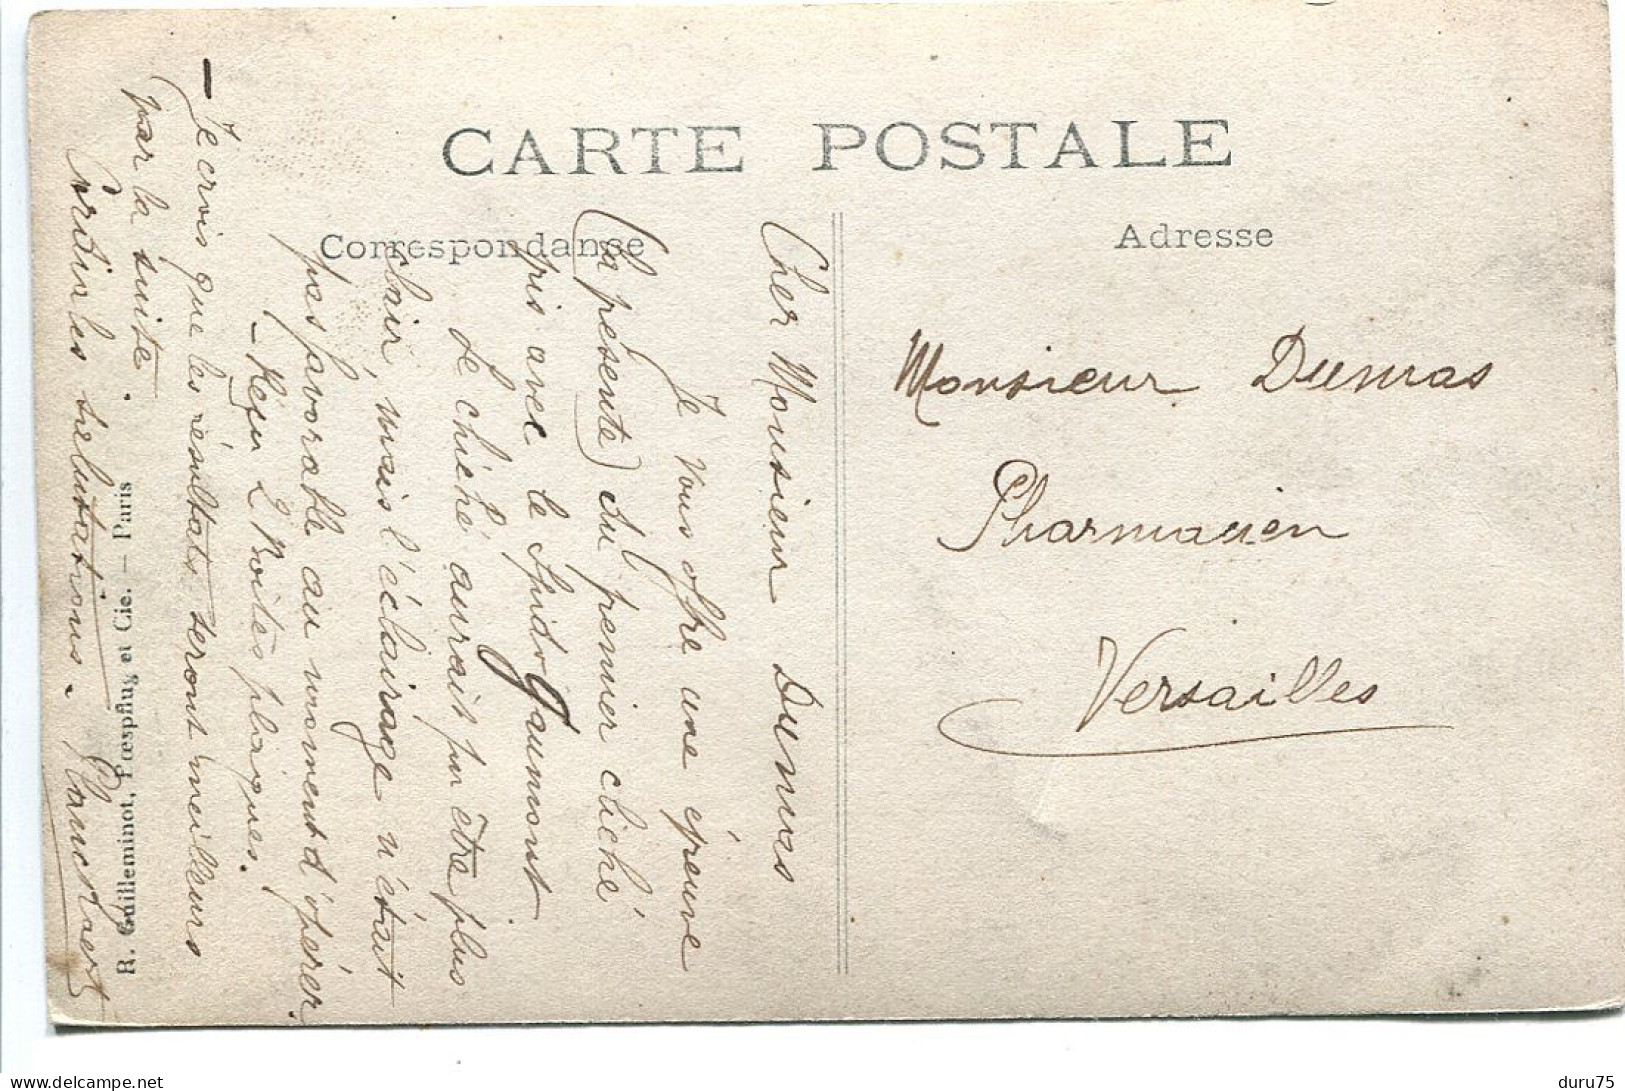 CARTE POSTALE
Correspondance
Adresse
Cher Monsieur Dumas
Je vous offre une épreuve
(la présente) du premier cliché
pris avec le Spido Gaumont
Le cliché aurait pu être plus
clair, mais l'éclairage n'était
pas favorable au moment d'opérer.
- Reçu 2 Boîtes plaques.
- Je crois que les résultats seront meilleurs
par la suite.
Cordiales salutations.
Monsieur Dumas
Pharmacien
Versailles
R. Guilleminot, Bœspflug et Cie. — Paris
delcampe.net
duru75